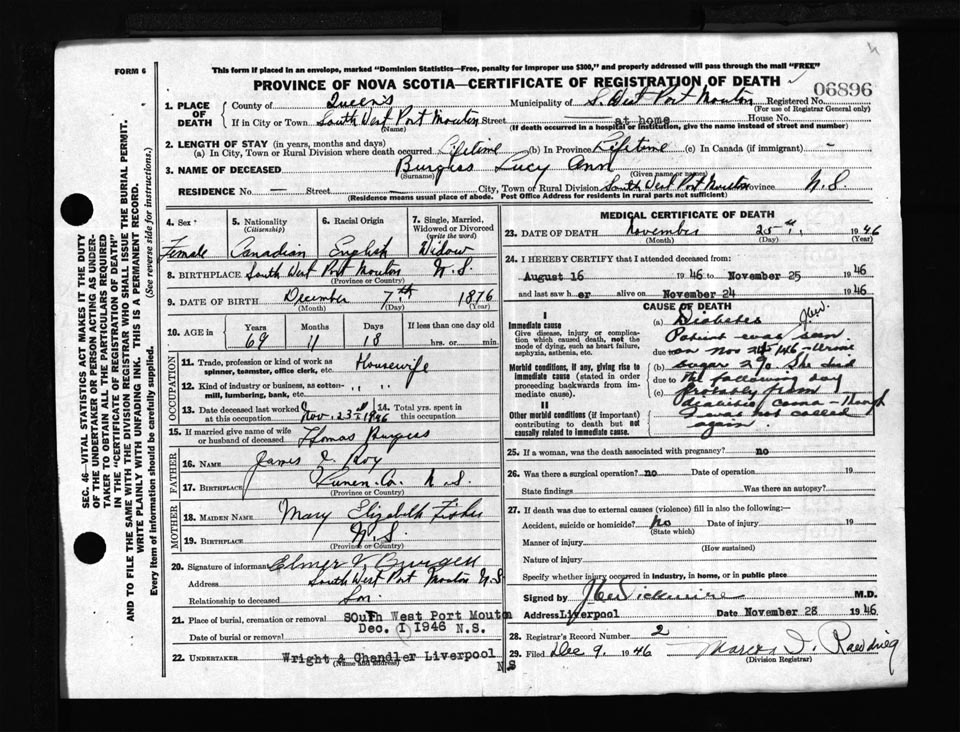 FORM 6
This form if placed in an envelope, marked "Dominion Statistics—Free, penalty for improper use $300," and properly addressed will pass through the mail "FREE"
PROVINCE OF NOVA SCOTIA—CERTIFICATE OF REGISTRATION OF DEATH
06896
1. PLACE OF DEATH
County of Queens Municipality of S. West Port Mouton Registered No.
(For use of Registrar General only)
If in City or Town South West Port Mouton Street at home House No.
(Name) (If death occurred in a hospital or institution, give the name instead of street and number)
2. LENGTH OF STAY (in years, months and days)
(a) In City, Town or Rural Division where death occurred Lifetime (b) In Province Lifetime (c) In Canada (if immigrant) -
3. NAME OF DECEASED Burgess Lucy Ann
(Surname) (Given name or names)
RESIDENCE No. — Street City, Town or Rural Division South West Port Mouton Province N.S.
(Residence means usual place of abode. Post Office Address for residents in rural parts not sufficient)
4. Sex Female
5. Nationality (Citizenship) Canadian
6. Racial Origin English
7. Single, Married, Widowed or Divorced (write the word) Widow
8. BIRTHPLACE South West Port Mouton N.S.
(Province or Country)
9. DATE OF BIRTH December 7th 1876
(Month) (Day) (Year)
10. AGE in Years 69 Months 11 Days 18 If less than one day old hrs. or min.
OCCUPATION
11. Trade, profession or kind of work as spinner, teamster, office clerk, etc. Housewife
12. Kind of industry or business, as cotten-mill, lumbering, bank, etc. " "
13. Date deceased last worked at this occupation Nov. 23rd 1946
14. Total yrs. spent in this occupation
15. If married give name of wife or husband of deceased Thomas Burgess
FATHER
16. NAME James Roy
17. BIRTHPLACE Lunen. Co. N.S.
(Province or Country)
MOTHER
18. MAIDEN NAME Mary Elizabeth Fisher
19. BIRTHPLACE N.S.
(Province or Country)
20. Signature of informant Elmer V. Burgess
Address South West Port Mouton N.S
Relationship to deceased Son
21. Place of burial, cremation or removal South West Port Mouton
Date of burial or removal Dec. 1 1946 N.S.
22. UNDERTAKER Wright & Chandler Liverpool NS
(Name and address)
MEDICAL CERTIFICATE OF DEATH
23. DATE OF DEATH November 25th 1946
(Month) (Day) (Year)
24. I HEREBY CERTIFY that I attended deceased from:
August 16 1946 to November 25 1946
and last saw her alive on November 24 1946
CAUSE OF DEATH
I
Immediate cause
Give disease, injury or complication which caused death, not the mode of dying, such as heart failure, asphyxia, asthenia, etc.
Morbid conditions, if any, giving rise to immediate cause (stated in order proceeding backwards from immediate cause).
II
Other morbid conditions (if important) contributing to death but not causally related to immediate cause.
(a) Diabetes
Patient was seen
due to on Nov 24 /46 - Urine
(b) sugar 2%. She died
due to the following day
(c) probably from
diabetic coma - though
I was not called
again.
25. If a woman, was the death associated with pregnancy? no
26. Was there a surgical operation? no Date of operation 19
State findings Was there an autopsy?
27. If death was due to external causes (violence) fill in also the following:—
Accident, suicide or homicide? No Date of injury 19
(State which)
Manner of injury
(How sustained)
Nature of injury
Specify whether injury occurred in industry, in home, or in public place
Signed by M.D.
Address Liverpool Date November 28 1946
28. Registrar's Record Number 2
29. Filed Dec 9, 1946
(Division Registrar)
SEC. 46—VITAL STATISTICS ACT MAKES IT THE DUTY OF THE UNDERTAKER OR PERSON ACTING AS UNDERTAKER TO OBTAIN ALL THE PARTICULARS REQUIRED IN THE "CERTIFICATE OF REGISTRATION OF DEATH" AND TO FILE THE SAME WITH THE DIVISION REGISTRAR WHO SHALL ISSUE THE BURIAL PERMIT.
WRITE PLAINLY WITH UNFADING INK. THIS IS A PERMANENT RECORD.
Every item of information should be carefully supplied. (See reverse side for instructions.)